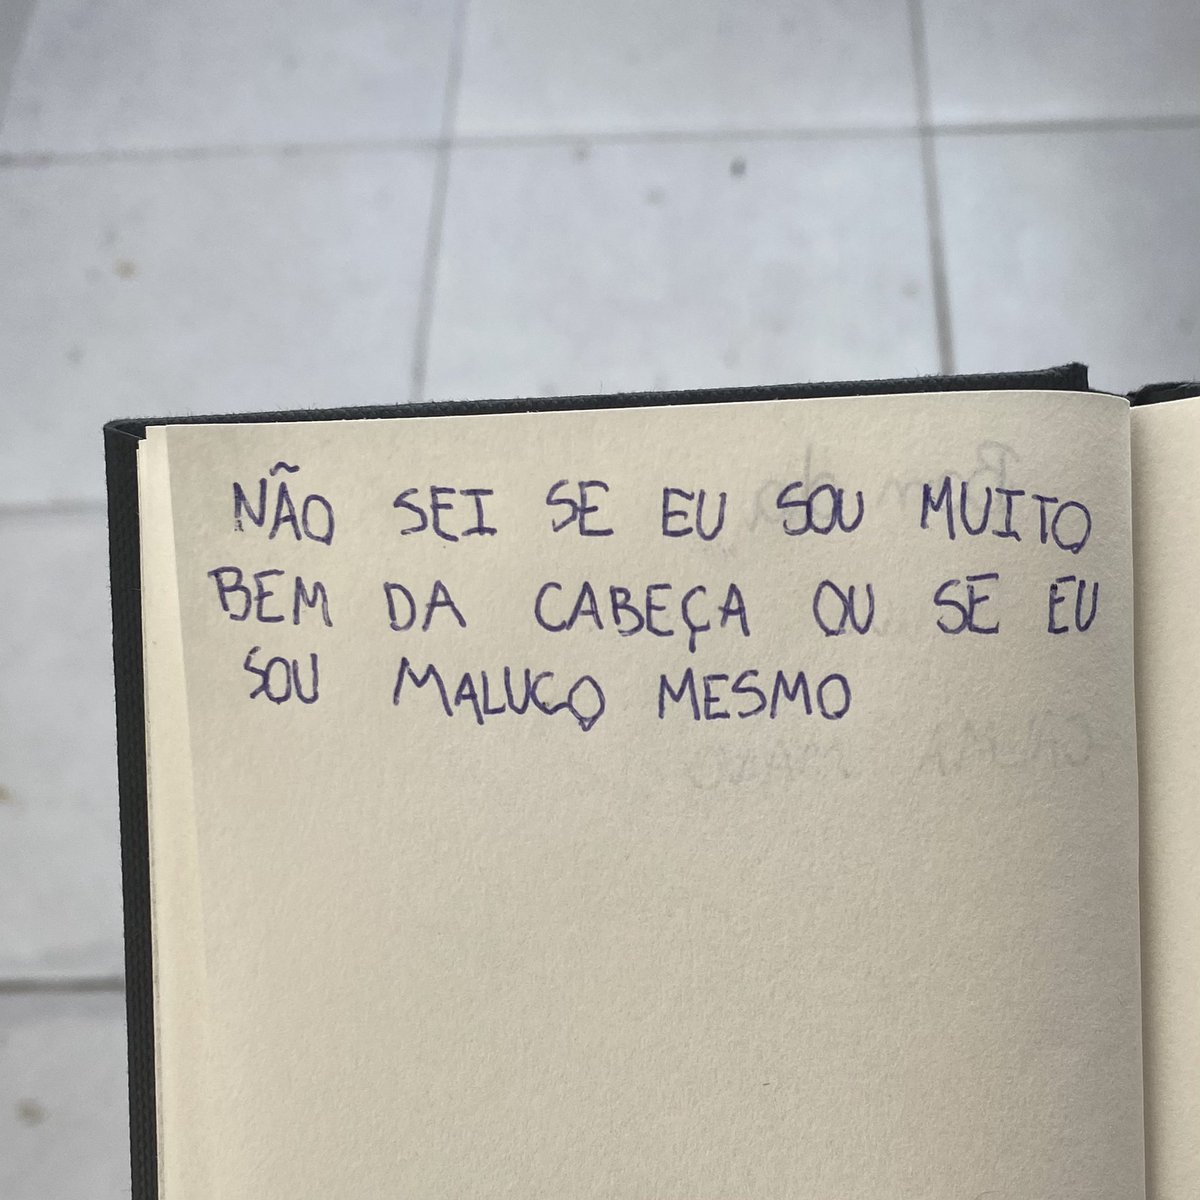 NÃO SEI SE EU SOU MUITO
BEM DA CABEÇA OU SE EU
SOU MALUCO MESMO